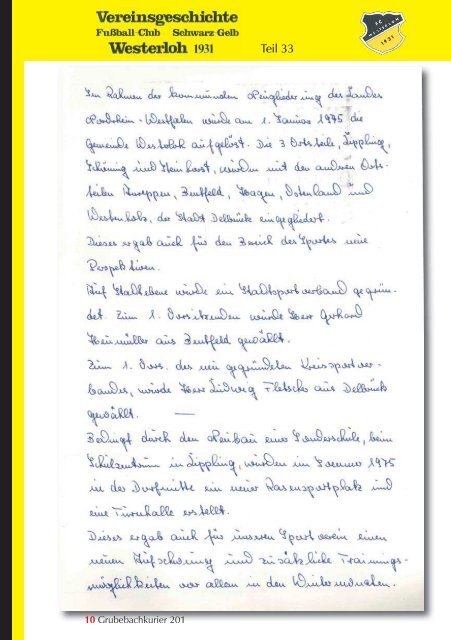 Vereinsgeschichte
Fußball-Club Schwarz-Gelb
Westerloh 1931 Teil 33
FC
WESTERLOH
1931
Im Rahmen der kommunalen Neugliederung des Landes
Nordrhein-Westfalen wurde am 1. Januar 1975 die
Gemeinde Westerloh aufgelöst. Die 3 Ortsteile, Lippling,
Schöning und Steinhorst, wurden mit den anderen Orts-
teilen Anreppen, Bentfeld, Hagen, Ostenland und
Westenholz, der Stadt Delbrück eingegliedert.
Dieses ergab auch für den Bereich des Sportes neue
Perspektiven.
Auf Stadtebene wurde ein Stadtsportverband gegrün-
det. Zum 1. Vorsitzenden wurde Herr Gerhard
aus Bentfeld gewählt.
Zum 1. Vors. des neu gegründeten Kreissportver-
bandes, wurde Herr Ludwig aus Delbrück
gewählt.
Bedingt durch den Neubau einer Sonderschule, beim
Schulzentrum in Lippling, wurden im Sommer 1975
in der Dorfmitte ein neuer Rasensportplatz und
eine Turnhalle erstellt.
Dieses ergab auch für unseren Sportverein einen
neuen Aufschwung und zusätzliche Trainings-
möglichkeiten vor allem in den Wintermonaten.
10 Grubebachkurier 201